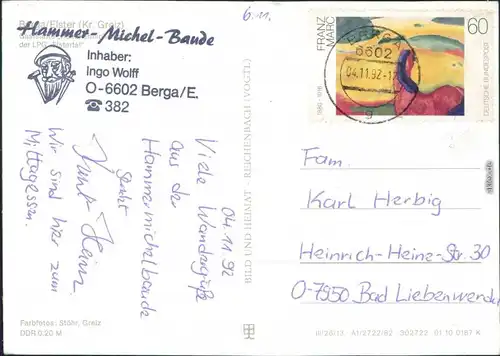 Berga/Elster (Kr. Greiz)
der LPG „Elstertal"
Hammer-Michel-Baude
Inhaber:
Ingo Wolff
O-6602 Berga/E.
☎ 382
6.11.
04.11.92
Viele Wandergrüße
aus der
Hammermichelbaude
Heinz
Wir sind hier zum
Mittagessen.
Farbfotos: Stöhr, Greiz
DDR 0,20 M
BILD UND HEIMAT REICHENBACH (VOGTL)
FRANZ
MARC
1880-1916
60
DEUTSCHE BUNDESPOST
BERGA
6602
04.11.92-12
g
Fam.
Karl Herbig
Heinrich-Heine-Str. 30
O-7950 Bad Liebenwerda
III/26/13 A1/2722/82 302722 01 10 0187 K